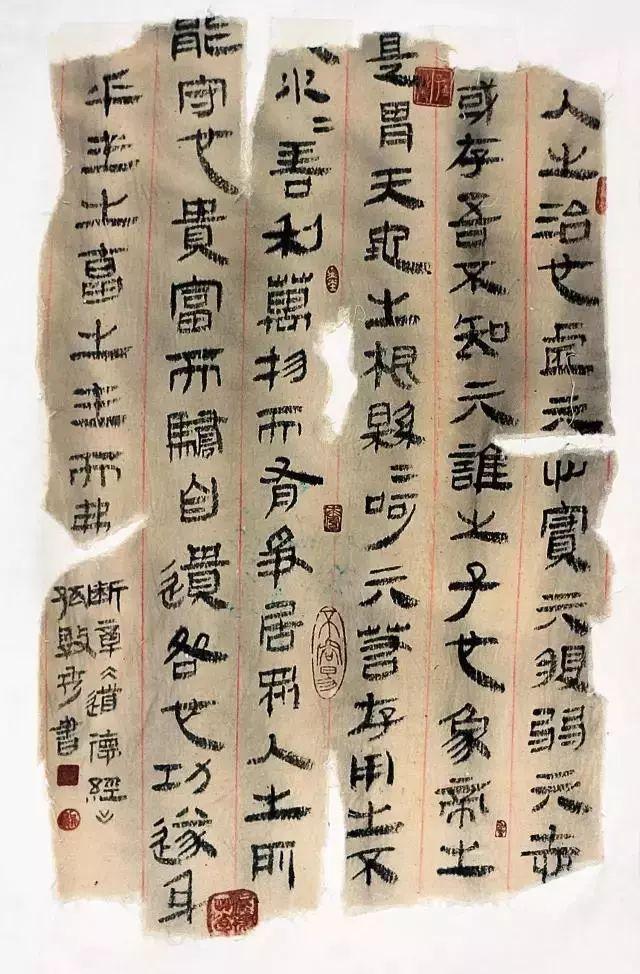 人之治也虛亓心實亓腹弱亓志
或存吾不知亓誰之子也象帝之
是胃天地之根緜〓呵亓若存用之不
水〓善利萬物而有爭居眾人之所
能守也貴富而驕自遺咎也功遂身
乎生之畜之生而弗
断章《道德經》
書